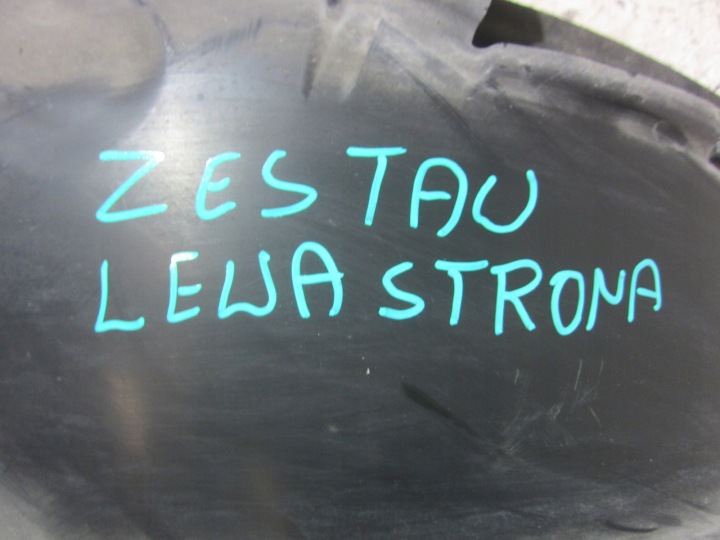 ZESTAW
LEWA STRONA